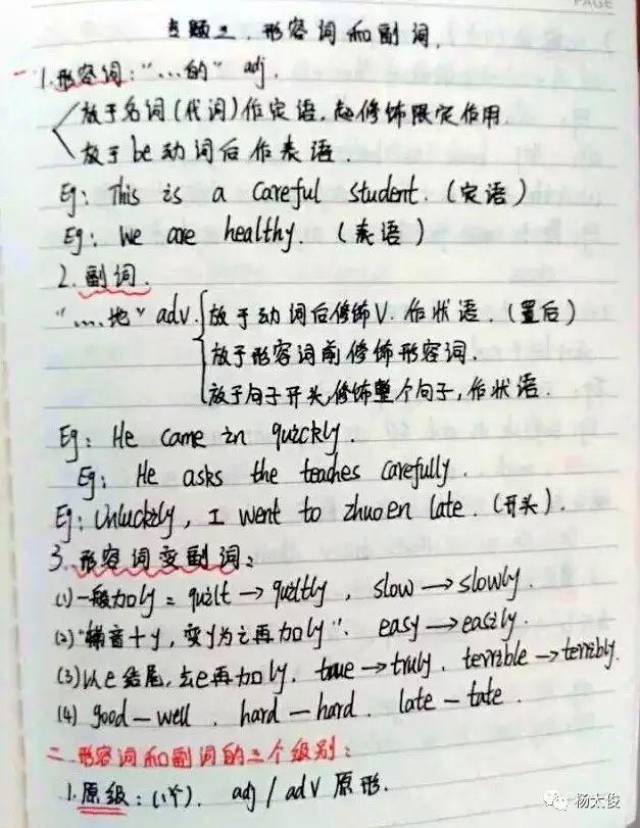 专题二、形容词和副词.
一 1.形容词:"…的" adj.
放于名词(代词)作定语.起修饰限定作用.
放于be动词后作表语.
Eg: This is a careful student.(定语)
Eg: We are healthy.(表语)
2.副词.
"…地" adv. 放于动词后修饰V. 作状语.(置后)
放于形容词前修饰形容词.
放于句子开头,修饰整个句子,作状语.
Eg: He came in quickly.
Eg: He asks the teaches carefully.
Eg: Unluckily, I went to zhuoen late.(开头).
3.形容词变副词:
(1)一般加ly = quilt → quiltly, slow → slowly.
(2)"辅音+y,变y为i再加ly". easy → easily.
(3)以e结尾,去e再加ly. true → truly. terrible → terribly.
(4) good — well. hard — hard. late — tate.
二.形容词和副词的三个级别:
1.原级:(1个). adj / adv 原形.
杨太俊